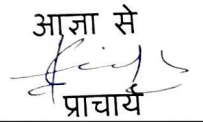 आज्ञा से
प्राचार्य